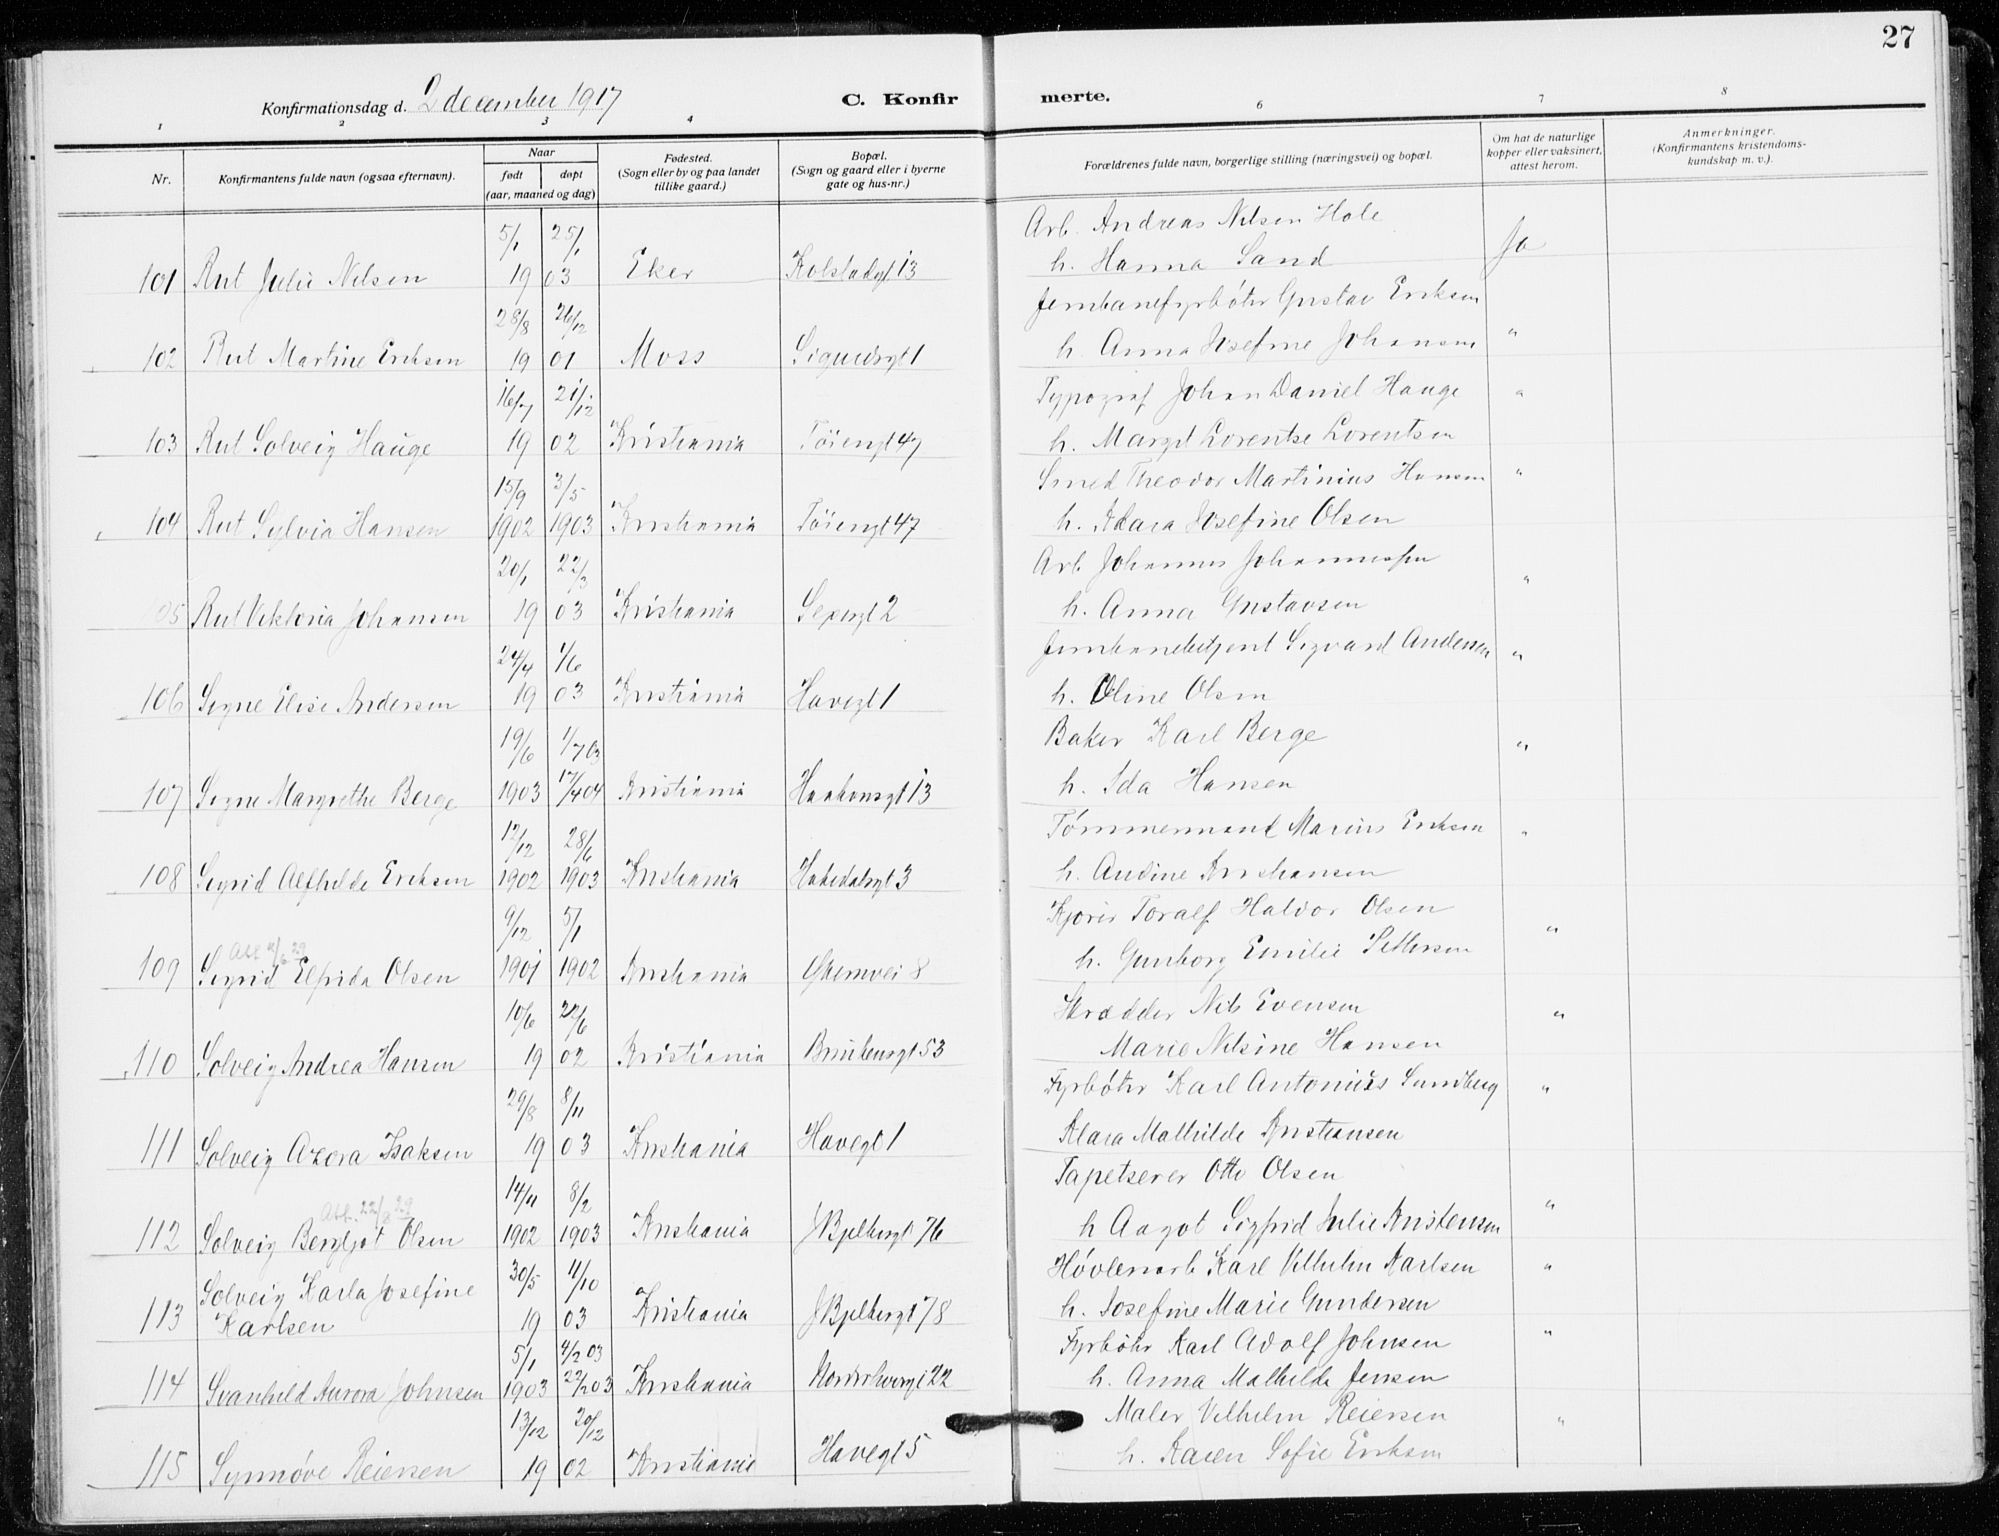 27
Konfirmationsdag d. 2 december 1917
C. Konfirmerte.
1 2 3 4 6 7 8
Nr.
Konfirmantens fulde navn (ogsaa efternavn).
Naar
født døpt
(aar, maaned og dag)
Fødested.
(Sogn eller by og paa landet
tillike gaard.)
Bopæl.
(Sogn og gaard eller i byerne
gate og hus-nr.)
Forældrenes fulde navn, borgerlige stilling (næringsvei) og bopæl.
Om hat de naturlige
kopper eller vaksinert,
attest herom.
Anmerkninger.
(Konfirmantens kristendoms-
kundskap m. v.).
5/1 25/1 Arb. Andreas Nilsen Hole
101 Rut Julie Nilsen 19 03 Eker Kolstadgt 13 h. Hanna Sand Ja
28/8 26/12 Jernbanefyrbøter Gustav Eriksen
102 Rut Martine Eriksen 19 01 Moss Sigurdsgt 1 h. Anna Josefine Johansen "
16/7 21/12 Typograf Johan Daniel Hauge "
103 Rut Solveig Hauge 19 02 Kristiania Tøiengt 47 h. Margit Lorentse Lorentsen
15/9 3/5 Smed Theodor Martinius Hansen "
104 Rut Sylvia Hansen 1902 1903 Kristiania Tøiengt 47 h. Klara Josefine Olsen
20/1 22/3 Arb. Johannes Johannessen
105 Rut Viktoria Johansen 19 03 Kristiania Sexesgt 2 h. Anna Gustavsen "
24/4 1/6 Jernbanebetjent Sigvard Andersen "
106 Signe Elise Andersen 19 03 Kristiania Havegt 1 h. Oline Olsen
19/6 1/7 03 Baker Karl Berge "
107 Signe Margrethe Berge 1903 17/4 04 Kristiania Haakonsgt 13 h. Ida Hansen
12/12 28/6 Tømmermand Marius Eriksen "
108 Sigrid Alfhilde Eriksen 1902 1903 Kristiania Hakedalsgt 3 h. Andine Kristiansen
9/12 5/1 Kjører Toralf Halvor Olsen "
109 Sigrid Elfrida Olsen 1901 1902 Kristiania 8 h. Gunborg Emilie Pettersen
10/6 22/6 Skrædder Nils Evensen "
110 Solveig Andrea Hansen 19 02 Kristiania 53 Marie Nilsine Hansen
29/8 8/11 Fyrbøter Karl Antonius Sundberg "
111 Solveig Azora Isaksen 19 03 Kristiania Havegt 1 Klara Mathilde Kristiansen
Att. 22/8 29
14/11 8/2 Tapetserer Otto Olsen
112 Solveig Bergljot Olsen 1902 1903 Kristiania J Bjelkesgt 76 h Aagot Sigfrid Julie Kristensen "
30/5 11/10 Høvleriarb Karl Vilhelm Karlsen "
113 Solveig Karla Josefine
Karlsen 19 03 Kristiania J Bjelkesgt 78 h. Josefine Marie Gundersen
5/1 4/2 03 Fyrbøter Karl Adolf Johnsen "
114 Svanhild Aurora Johnsen 1903 22/2 03 Kristiania Norderhovgt 22 h. Anna Mathilde Jensen
13/12 20/12 Maler Vilhelm Reiersen "
115 Synnøve Reiersen 19 02 Kristiania Havegt 5 h. Karen Sofie Eriksen